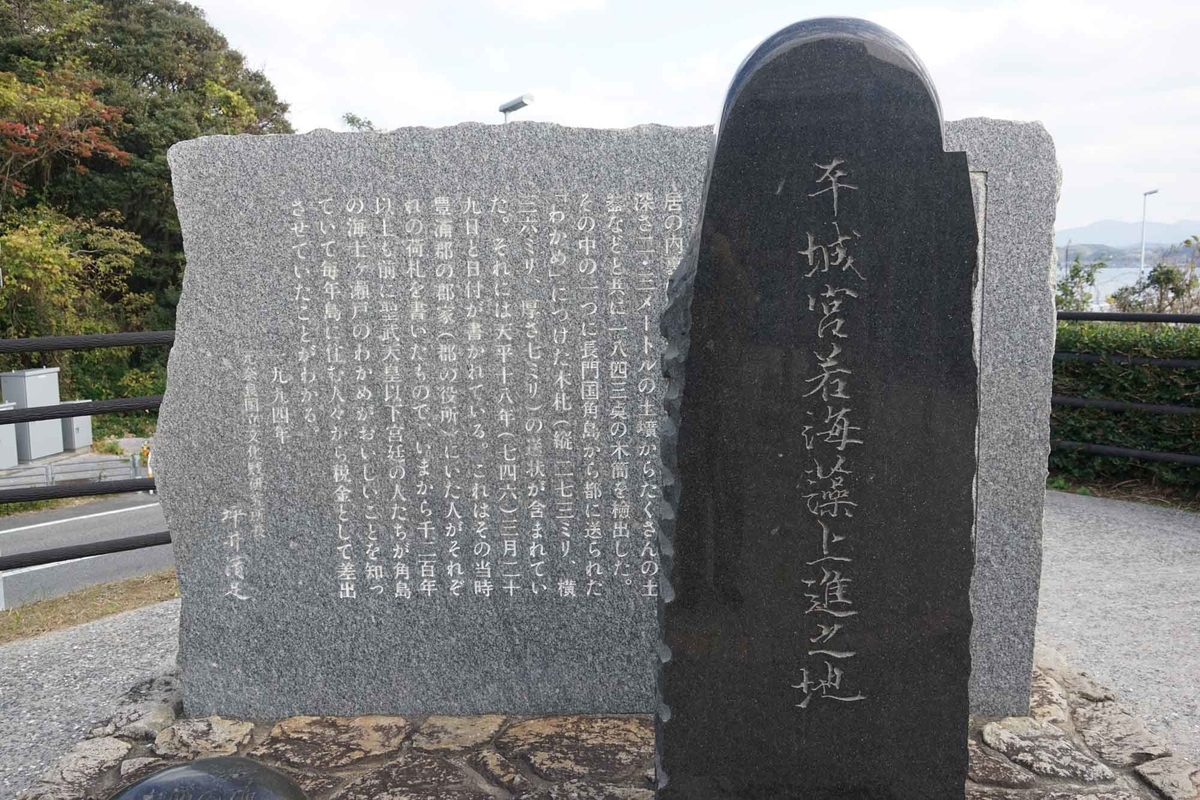 平城宮若海藻上進之地
居の内
深さ二・三メートルの土壙からたくさんの土
器などと共に一八四三奌の木簡を検出した。
その中の一つに長門国角島から都に送られた
「わかめ」につけた木札(縦二七三ミリ、横
二六ミリ、厚さ七ミリ)の送状が含まれてい
た。それには天平十八年(七四六)三月二十
九日と日付が書かれている。これはその当時
豊浦郡の郡家(郡の役所)にいた人がそれぞ
れの荷札を書いたもので、いまから千二百年
以上も前に聖武天皇以下宮廷の人たちが角島
の海士ヶ瀬戸のわかめがおいしいことを知っ
ていて毎年島に住む人々から税金として差出
させていたことがわかる。
一九九四年
元奈良国立文化財研究所長
坪井清足